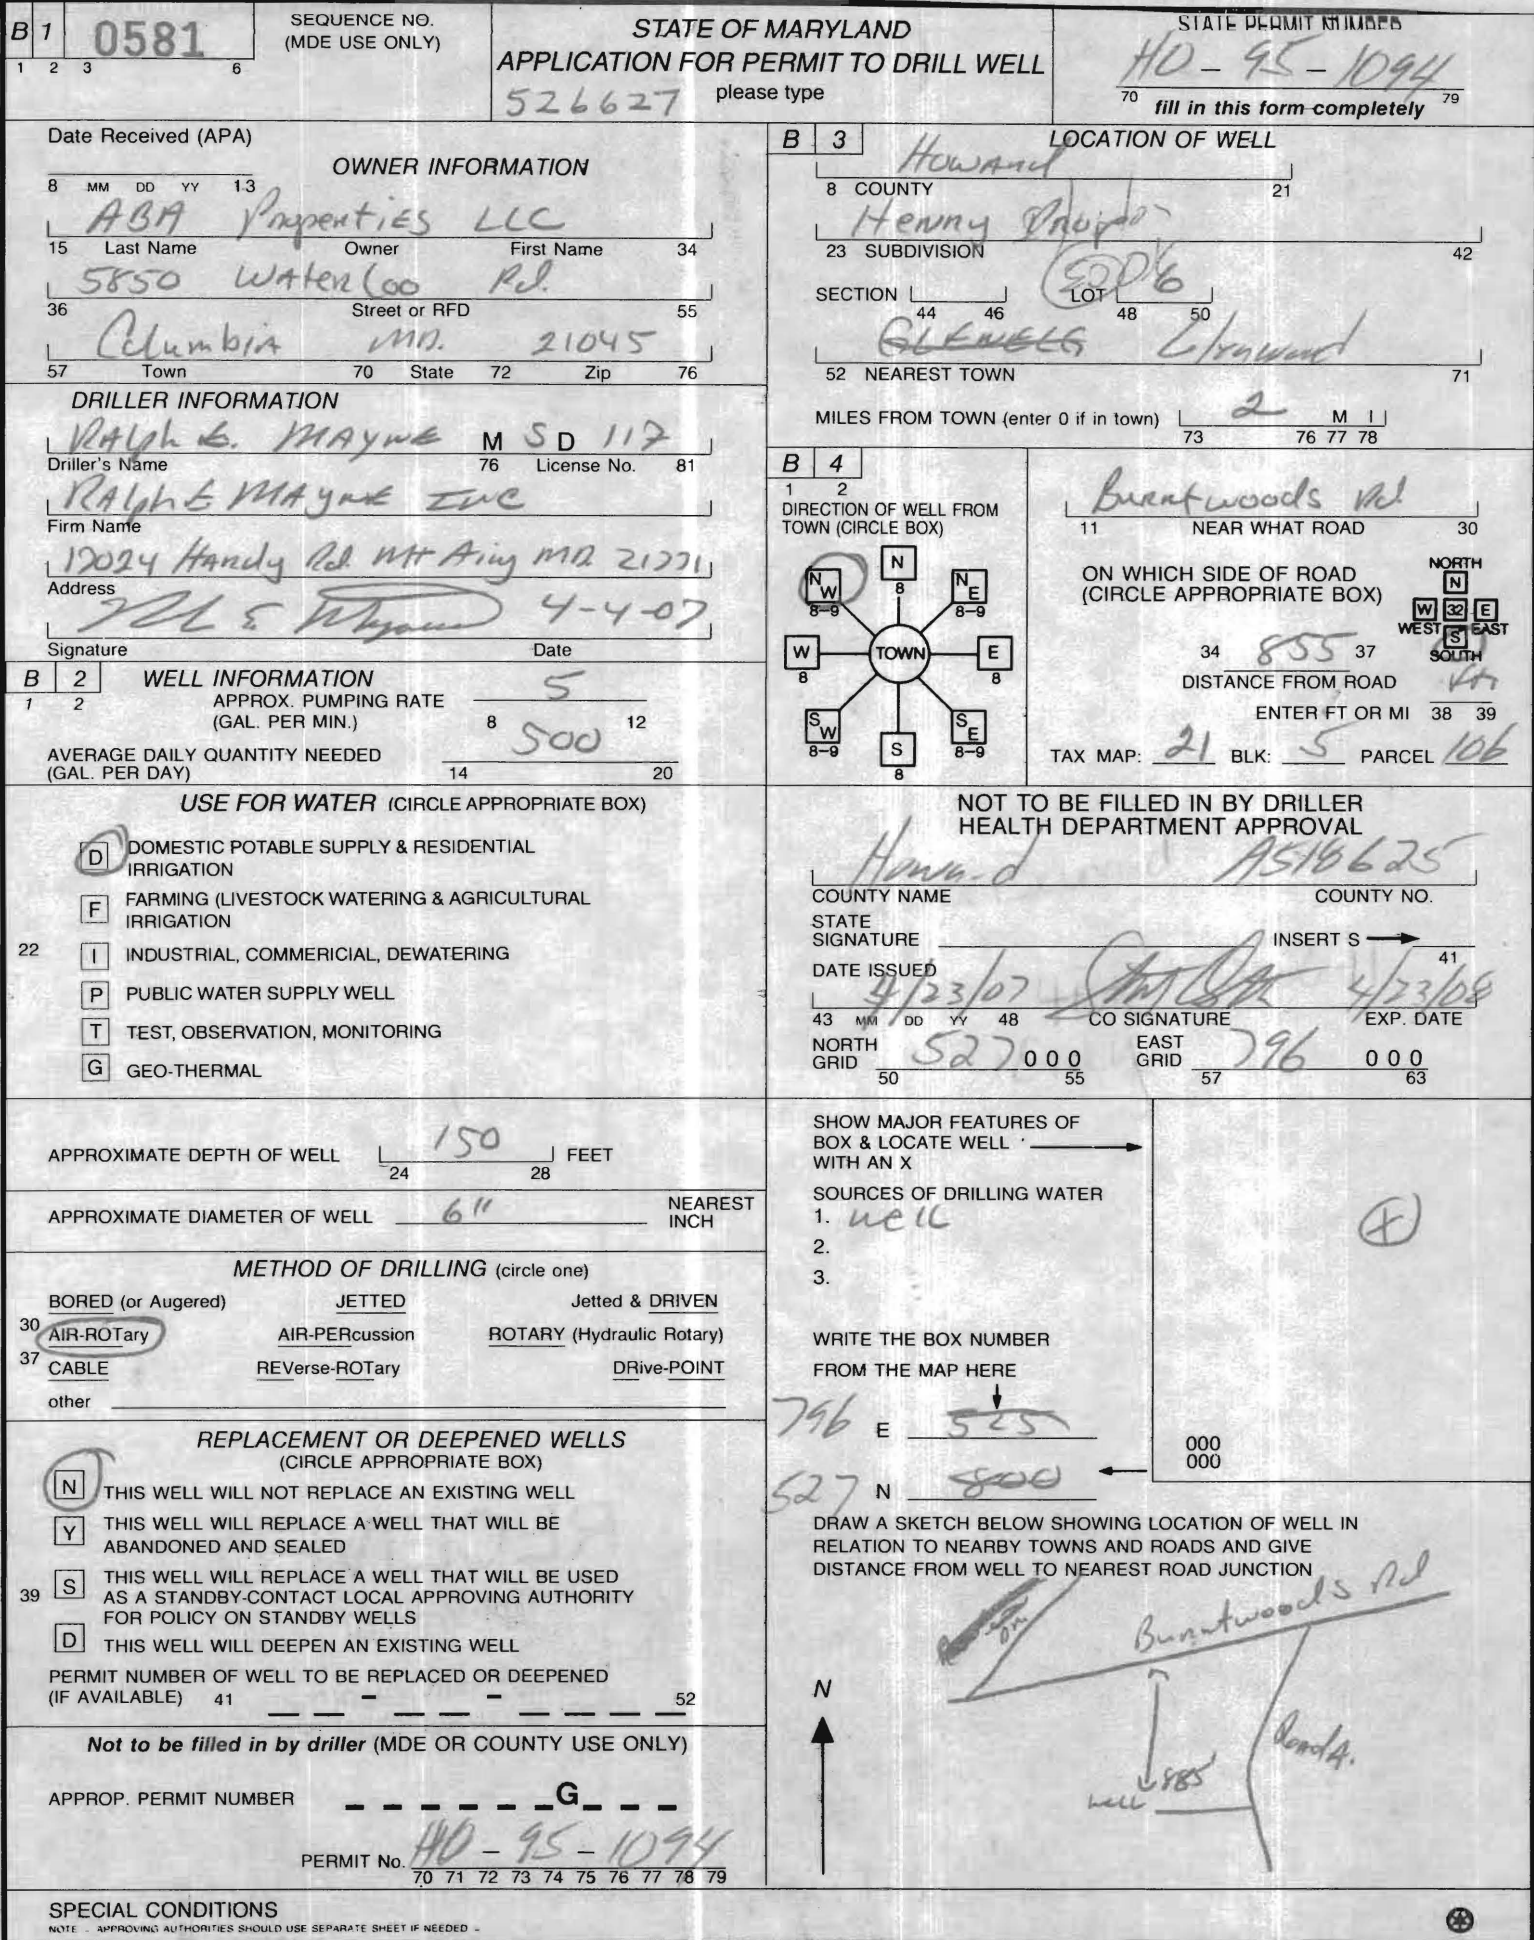 B 1 0581
1 2 3 6
SEQUENCE NO.
(MDE USE ONLY)
STATE OF MARYLAND
APPLICATION FOR PERMIT TO DRILL WELL
526627 please type
STATE PERMIT NUMBER
HO - 95 - 1094
70 fill in this form completely 79
Date Received (APA)
OWNER INFORMATION
8 MM DD YY 13
ABA Properties LLC
15 Last Name Owner First Name 34
5850 Waterloo Rd.
36 Street or RFD 55
Columbia MD. 21045
57 Town 70 State 72 Zip 76
DRILLER INFORMATION
Ralph E. MAYNE M S D 117
Driller's Name 76 License No. 81
RALPH E MAYNE INC
Firm Name
17024 Handy Rd. Mt Airy MD. 21771
Address
4-4-07
Signature Date
B 2 WELL INFORMATION
1 2
APPROX. PUMPING RATE 5
(GAL. PER MIN.) 8 12
AVERAGE DAILY QUANTITY NEEDED 500
(GAL. PER DAY) 14 20
USE FOR WATER (CIRCLE APPROPRIATE BOX)
D DOMESTIC POTABLE SUPPLY & RESIDENTIAL
IRRIGATION
F FARMING (LIVESTOCK WATERING & AGRICULTURAL
IRRIGATION
22 I INDUSTRIAL, COMMERICIAL, DEWATERING
P PUBLIC WATER SUPPLY WELL
T TEST, OBSERVATION, MONITORING
G GEO-THERMAL
APPROXIMATE DEPTH OF WELL 150 FEET
24 28
APPROXIMATE DIAMETER OF WELL 6" NEAREST
INCH
METHOD OF DRILLING (circle one)
BORED (or Augered) JETTED Jetted & DRIVEN
30 AIR-ROTary AIR-PERcussion ROTARY (Hydraulic Rotary)
37 CABLE REVerse-ROTary DRive-POINT
other
REPLACEMENT OR DEEPENED WELLS
(CIRCLE APPROPRIATE BOX)
N THIS WELL WILL NOT REPLACE AN EXISTING WELL
Y THIS WELL WILL REPLACE A WELL THAT WILL BE
ABANDONED AND SEALED
39 S THIS WELL WILL REPLACE A WELL THAT WILL BE USED
AS A STANDBY-CONTACT LOCAL APPROVING AUTHORITY
FOR POLICY ON STANDBY WELLS
D THIS WELL WILL DEEPEN AN EXISTING WELL
PERMIT NUMBER OF WELL TO BE REPLACED OR DEEPENED
(IF AVAILABLE) 41 - - 52
Not to be filled in by driller (MDE OR COUNTY USE ONLY)
APPROP. PERMIT NUMBER G
PERMIT No. HO - 95 - 1094
70 71 72 73 74 75 76 77 78 79
SPECIAL CONDITIONS
NOTE - APPROVING AUTHORITIES SHOULD USE SEPARATE SHEET IF NEEDED -
B 3 LOCATION OF WELL
Howard
8 COUNTY 21
Henny
23 SUBDIVISION 42
SECTION LOT 6
44 46 48 50
GLENELG Glenwood
52 NEAREST TOWN 71
MILES FROM TOWN (enter 0 if in town) 2 M I
73 76 77 78
B 4
1 2
DIRECTION OF WELL FROM
TOWN (CIRCLE BOX)
N
8
NW
8-9
NE
8-9
W
8
TOWN
E
8
SW
8-9
S
8
SE
8-9
Burntwoods Rd.
11 NEAR WHAT ROAD 30
ON WHICH SIDE OF ROAD
(CIRCLE APPROPRIATE BOX)
NORTH
N
W 32 E
WEST S EAST
SOUTH
34 855 37
DISTANCE FROM ROAD
ENTER FT OR MI ft 38 39
TAX MAP: 21 BLK: 5 PARCEL 106
NOT TO BE FILLED IN BY DRILLER
HEALTH DEPARTMENT APPROVAL
Howard A518625
COUNTY NAME COUNTY NO.
STATE
SIGNATURE INSERT S
41
DATE ISSUED
4/23/07 4/23/08
43 MM DD YY 48 CO SIGNATURE EXP. DATE
NORTH
GRID 527 000
50 55
EAST
GRID 796 000
57 63
SHOW MAJOR FEATURES OF
BOX & LOCATE WELL
WITH AN X
SOURCES OF DRILLING WATER
1. well
2.
3.
X
WRITE THE BOX NUMBER
FROM THE MAP HERE
796 E 525
527 N 800
000
000
DRAW A SKETCH BELOW SHOWING LOCATION OF WELL IN
RELATION TO NEARBY TOWNS AND ROADS AND GIVE
DISTANCE FROM WELL TO NEAREST ROAD JUNCTION
Burntwoods Rd
N
Road A.
885'
well